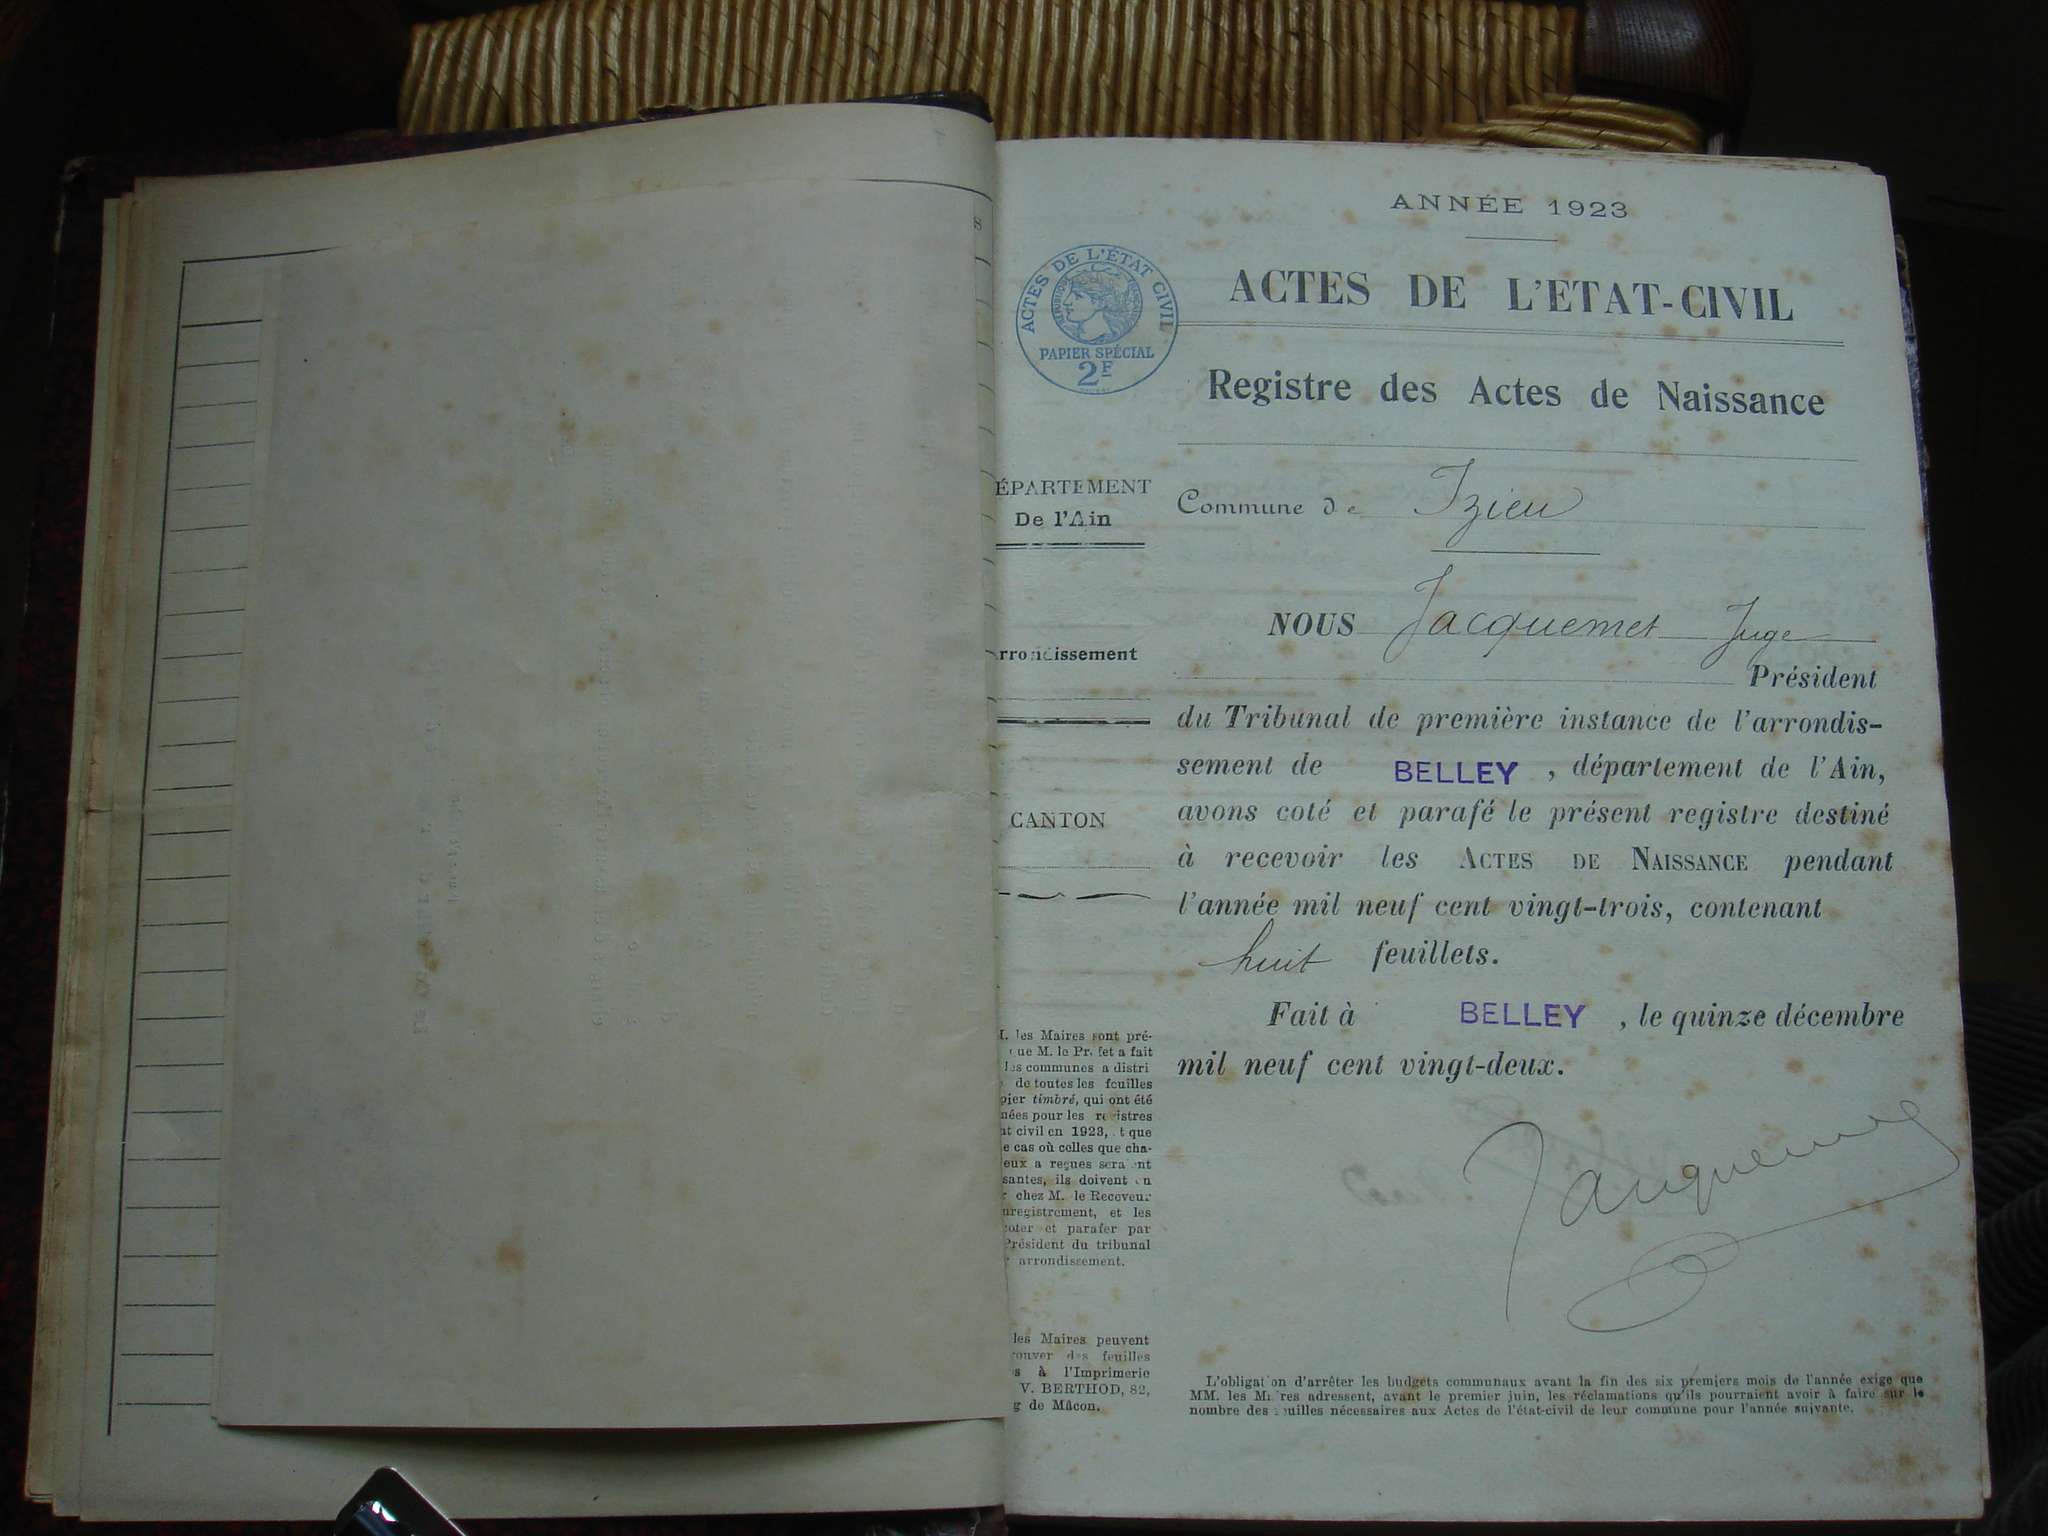 ANNÉE 1923
ACTES DE L'ÉTAT CIVIL
RÉPUBLIQUE FRANÇAISE
PAPIER SPÉCIAL
2F
ACTES DE L'ETAT-CIVIL
Registre des Actes de Naissance
ÉPARTEMENT
De l'Ain
rrondissement
CANTON
Commune de Izieu
NOUS Jacquemet Juge
Président
du Tribunal de première instance de l'arrondis-
sement de BELLEY, département de l'Ain,
avons coté et parafé le présent registre destiné
à recevoir les ACTES DE NAISSANCE pendant
l'année mil neuf cent vingt-trois, contenant
huit feuillets.
Fait à BELLEY, le quinze décembre
mil neuf cent vingt-deux.
Jacquemet
. les Maires sont pré-
ue M. le Préfet a fait
les communes a distri
de toutes les feuilles
pier timbré, qui ont été
nées pour les registres
at civil en 1923, et que
e cas où celles que cha-
eux a reçues seraient
santes, ils doivent en
r chez M. le Receveur
nregistrement, et les
coter et parafer par
Président du tribunal
r arrondissement.
les Maires peuvent
rouver des feuilles
s à l'Imprimerie
V. BERTHOD, 82,
g de Mâcon.
L'obligation d'arrêter les budgets communaux avant la fin des six premiers mois de l'année exige que
MM. les Maires adressent, avant le premier juin, les réclamations qu'ils pourraient avoir à faire sur le
nombre des feuilles nécessaires aux Actes de l'état-civil de leur commune pour l'année suivante.